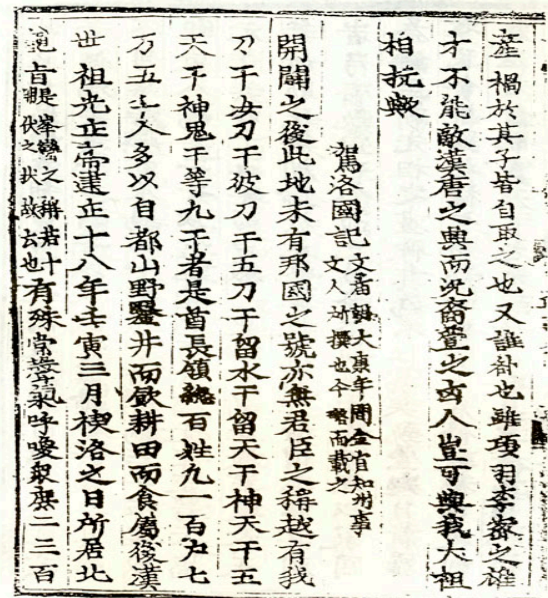 産禍於其子皆自取之也又誰咎也雖項羽李密之雄
才不能敵漢唐之興而況裔萱之凶人豈可與我大祖
相抗歟
駕洛國記
文廟朝大康年間金官知州事
文人所撰也今略而載之
開闢之後此地未有邦國之號亦無君臣之稱越有我
刀干汝刀干彼刀干五刀干留水干留天干神天干五
天干神鬼干等九干者是酋長領緫百姓九一百戶七
万五千人多以自都山野鑿井而飮耕田而食屬後漢
世祖光正帝建正十八年壬寅三月禊洛之日所居北
龜旨
是峯巒之稱若十
朋伏之狀故云也
有殊常聲氣呼喚衆庶二三百